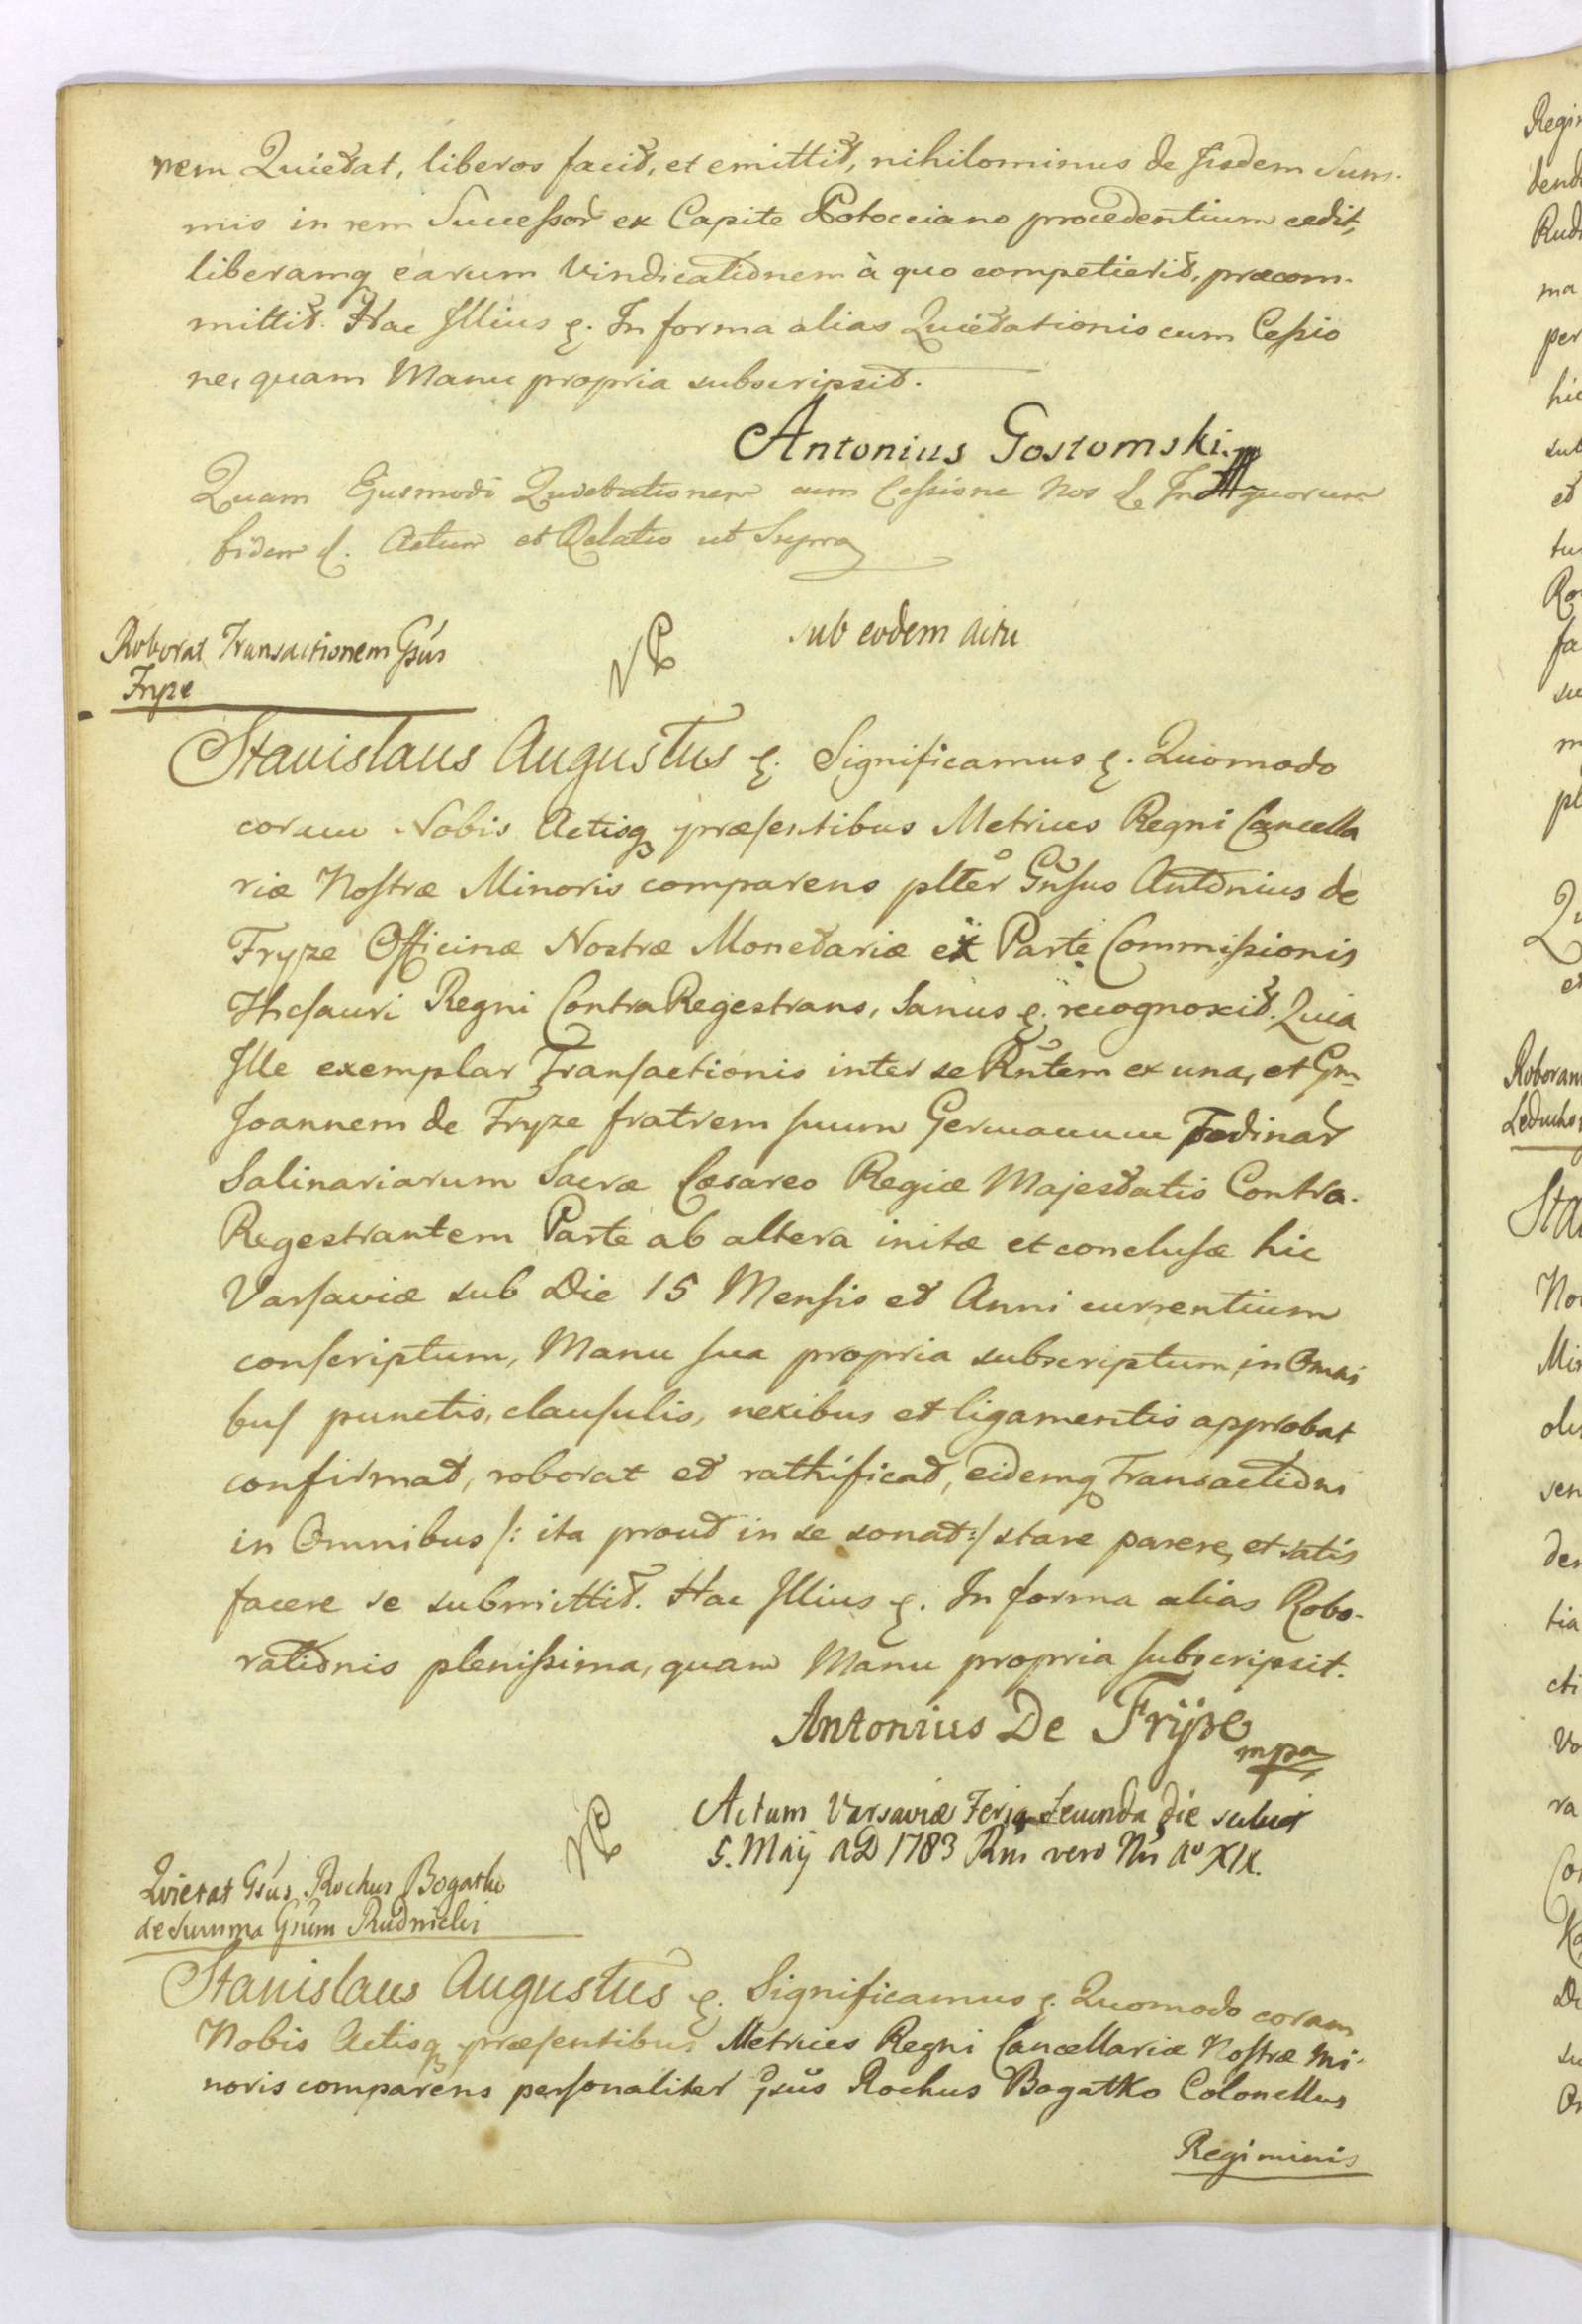 nem Quietat, liberos facit, et emittit, nihilominus de Jisdem Sum-
mis in rem Successor ex Capite Potocciano procedentium cedit,
liberamq earum Vindicationem à quo competierit, præcom-
mittit. Hac Illius &. In forma alias Quietationis cum Cessio
ne, quam Manu propria subscripsit.
Antonius Gostomski
Quam Ejusmodi Quietationem cum Cessione Nos & In quorum
fidem &. Actum et Relatio ut Supra
sub eodem actu
Roborat Transactionem Gsús
Fryze
Stanislaus Augustus &. Significamus &. Quomodo
coram Nobis Actisq præsentibus Metrices Regni Cancella
riæ Nostræ Minoris comparens plter Gnsus Antonius de
Fryze Officinæ Nostræ Monetariæ ex Parte Commissionis
Thesauri Regni ContraRegestrans, Sanus &. recognoscit. Quia
Ille exemplar Transactionis inter se Rntem ex una, et Gm
Joannem de Fryze fratrem suum Germanum Fodinar
Salinariarum Sacræ Cæsareo Regiæ Majestatis Contra-
Regestrantem Parte ab altera initæ et conclusæ hic
Varsaviæ sub Die 15 Mensis et Anni currentium
conscriptum, Manu sua propria subscriptum, in Omni
bus punctis, clausulis, nexibus et ligamentis approbat
confirmat, roborat et rathificat, eidemq Transactioni
in Omnibus /: ita prout in se sonat :/ stare parere, et satis
facere se submittit. Hac Illius &. In forma alias Robo-
rationis plenissima, quam Manu propria subscripsit.
Antonius De Frÿze
mpa
Actum Varsaviæ Feria Secunda die
5. Maÿ AD 1783 Rni vero Nri Ao XIX.
Quietat Gsús Rochus Bogatko
de Summa Gsum Rudnicki
Stanislaus Augustus &. Significamus &. Quomodo coram
Nobis Actisq præsentibus Metrices Regni Cancellariæ Nostræ Mi-
noris comparens personaliter Gsus Rochus Bogatko Colonellus
Regiminis